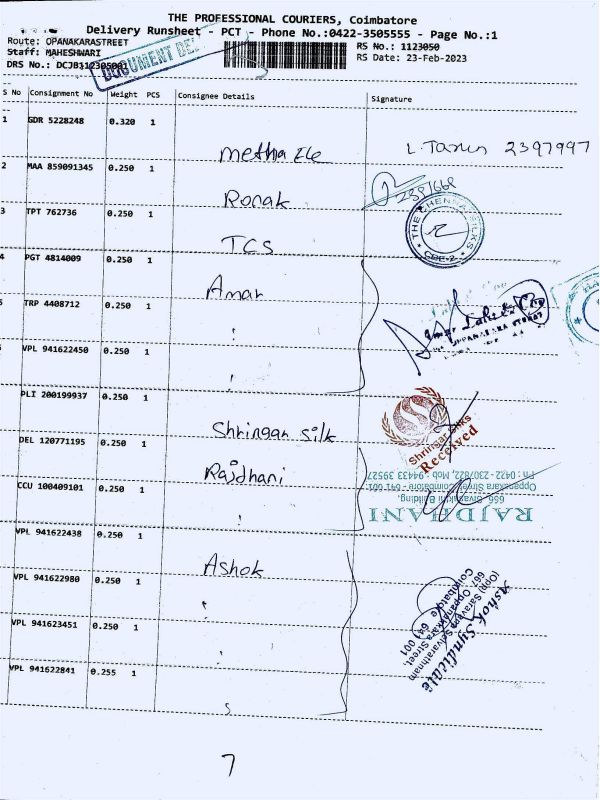 THE PROFESSIONAL COURIERS, Coimbatore
Delivery Runsheet - PCT - Phone No.:0422-3505555 - Page No.:1
Route: OPANAKARASTREET
RS No.: 1123050
Staff: MAHESHWARI
RS Date: 23-Feb-2023
DRS No.: DCJB112305001
DOCUMENT DEL
S No Consignment No Weight PCS Consignee Details Signature
1 GDR 5228248 0.320 1
Metha Ele
2397997
2 MAA 859091345 0.250 1
Ronak
THE CHENNAI SILKS
CBE-2
3 TPT 762736 0.250 1
TCS
4 PGT 4814009 0.250 1
Amar
5 TRP 4408712 0.250 1
"
OPPANAKARA STREET
VPL 941622450 0.250 1
"
PLI 200199937 0.250 1
Shringar Silk
Shringar Silks
Received
DEL 120771195 0.250 1
Rajdhani
RAJDHANI
666, Sivasakthi Building,
Oppanakara Street, Coimbatore - 641 001.
Ph : 0422 - 2307822, Mob : 94433 39527
CCU 100409101 0.250 1
"
VPL 941622438 0.250 1
Ashok
Ashok Syndicate
(Opp) Saravana Selvarathnam
667, Oppanakara Street,
Coimbatore - 641 001
VPL 941622980 0.250 1
"
VPL 941623451 0.250 1
"
VPL 941622841 0.255 1
7